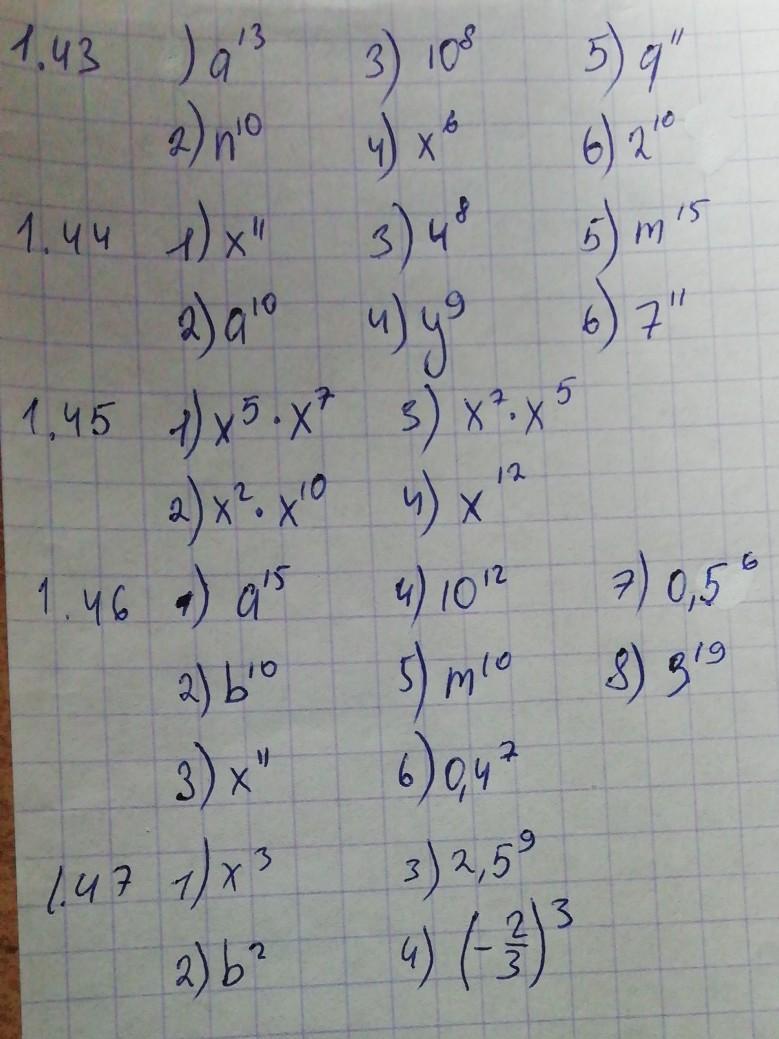 1.43 1) a¹³ 3) 10⁸ 5) q¹¹
2) n¹⁰ 4) x⁶ 6) 2¹⁰
1.44 1) x¹¹ 3) 4⁸ 5) m¹⁵
2) a¹⁰ 4) y⁹ 6) 7¹¹
1.45 1) x⁵ · x⁷ 3) x⁷ · x⁵
2) x² · x¹⁰ 4) x¹²
1.46 1) a¹⁵ 4) 10¹² 7) 0,5⁶
2) b¹⁰ 5) m¹⁰ 8) 3¹⁹
3) x¹¹ 6) 0,4⁷
1.47 1) x³ 3) 2,5⁹
2) b² 4) (-2/3)³